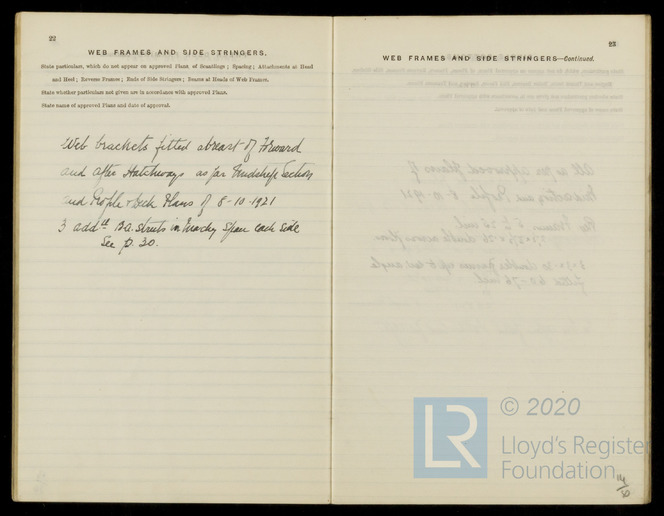 22
WEB FRAMES AND SIDE STRINGERS.
State particulars, which do not appear on approved Plans, of Scantlings; Spacing; Attachments at Head
and Heel; Reverse Frames; Ends of Side Stringers; Beams at Heads of Web Frames.
State whether particulars not given are in accordance with approved Plans.
State name of approved Plans and date of approval.
Web brackets fitted abreast of Forward
and after Hatchways as per Midship Section
and Profile & Deck Plans of 8-10-1921
3 addl B.A. struts in Machy Space each side
See p. 30.
23
WEB FRAMES AND SIDE STRINGERS—Continued.
LR
© 2020
Lloyd's Register
Foundation